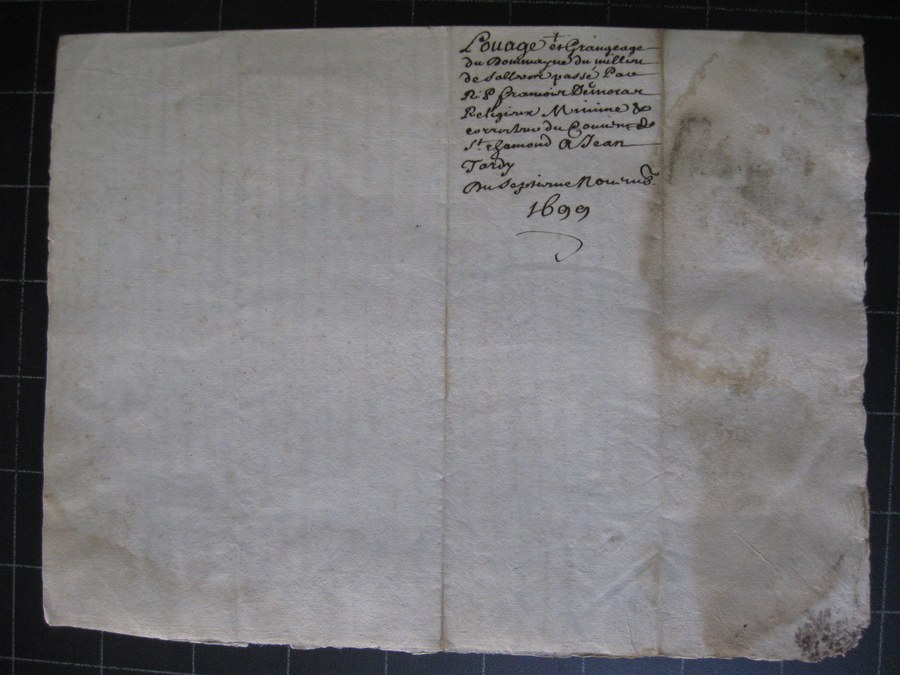 Louage et Grangeage
du Dommayne du millieu
de Salbron passé Par
R. P. Francois Demorar
Religieux Minime &
correcteur du Couvent de
St. chamond A Jean
Tardy
Du Septieme Nouemb.
1699